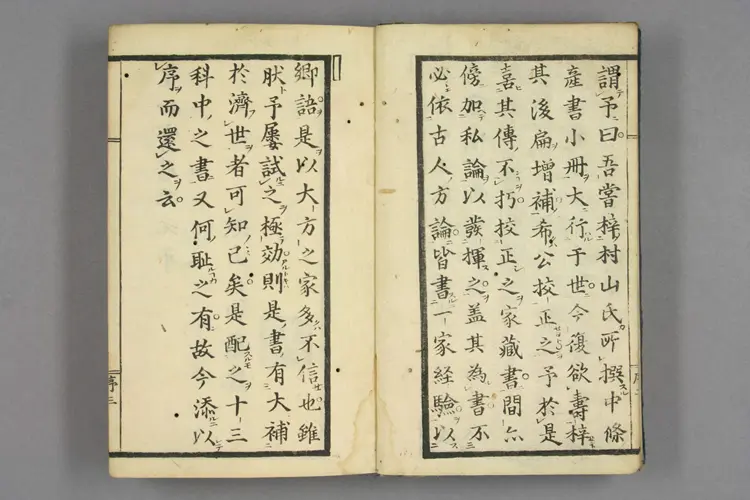 謂予曰吾嘗梓村山氏所撰中條
產書小冊大行于世今復欲壽梓
其後扁增補希公挍正之予於是
喜其傳不朽挍正之家藏書間亦
傍加私論以發揮之盖其為書不
必依古人方論皆書一家経驗以
鄉語是以大方之家多不信也雖
肰予屡試之極効則是書有大補
於濟世者可知已矣是配之十三
科中之書又何耻之有故今添以
序而還之云
序三